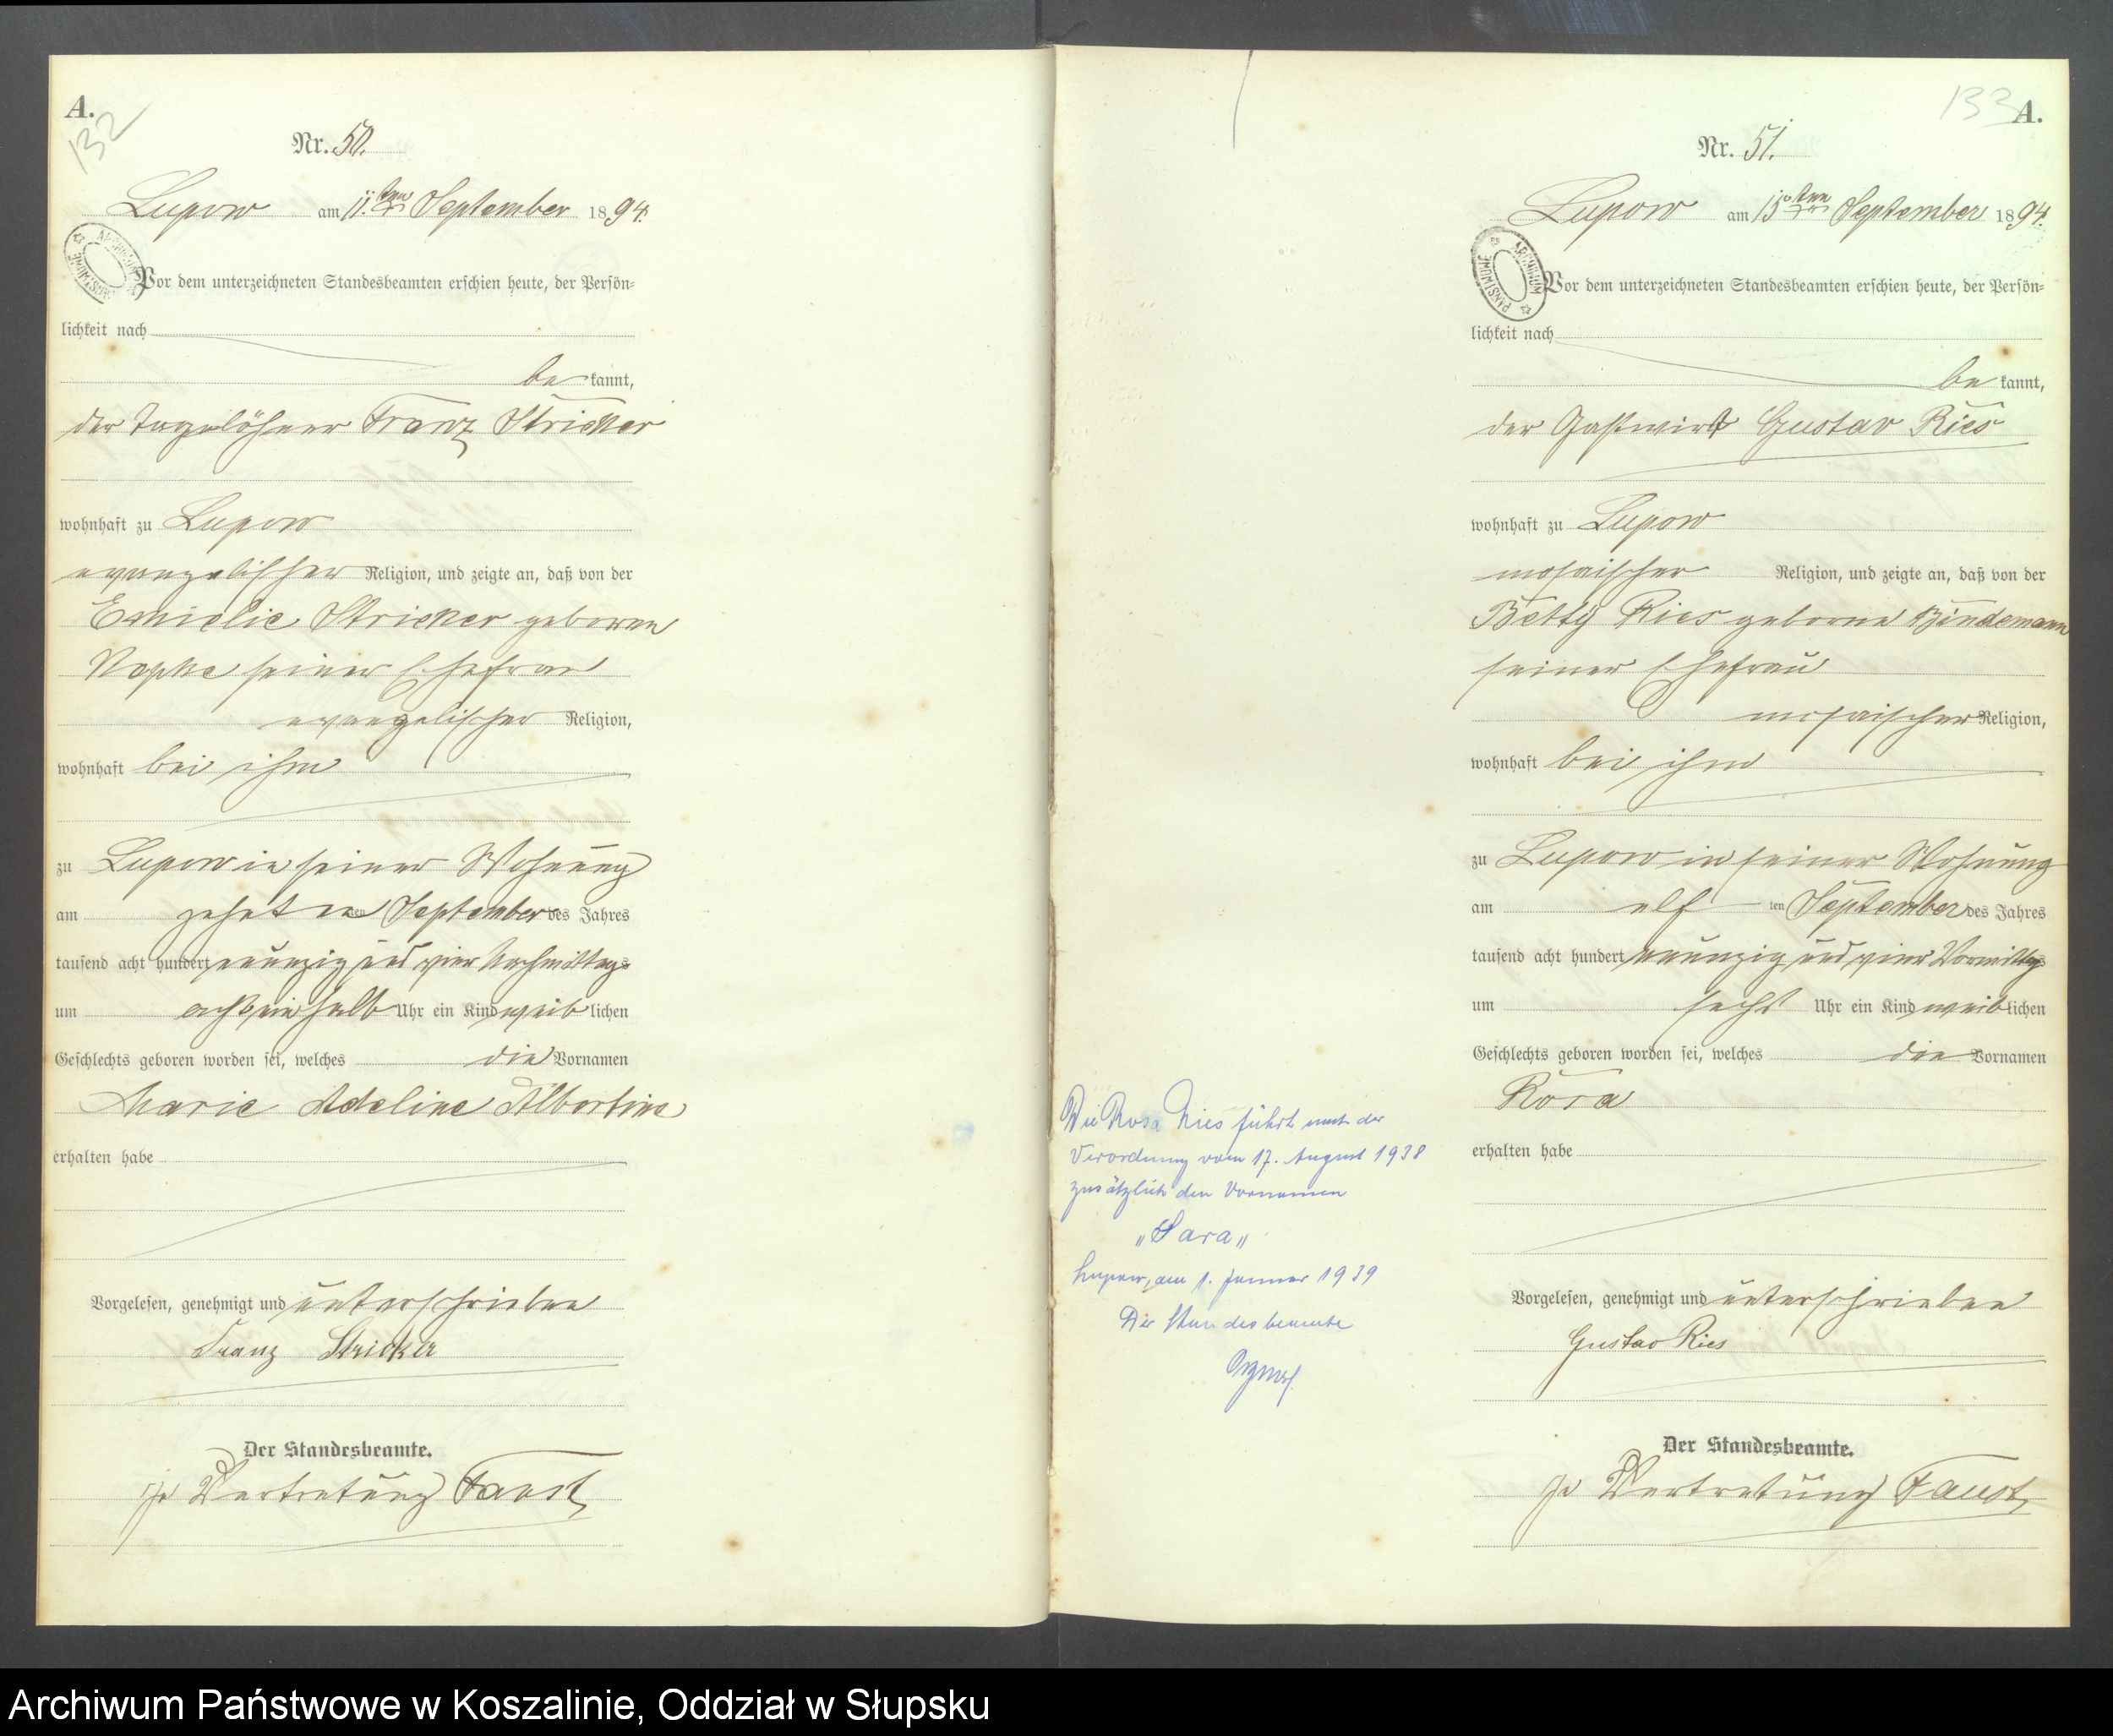 A.
132
Nr. 50.
Lupow am 11ten September 1894.
Vor dem unterzeichneten Standesbeamten erschien heute, der Persön-
lichkeit nach
be kannt,
der Tagelöhner Franz Stricker
wohnhaft zu Lupow
evangelischer Religion, und zeigte an, daß von der
Emielie Stricker geborene
seiner Ehefrau
evangelischer Religion,
wohnhaft bei ihm
zu Lupow in seiner Wohnung
am zehnten September des Jahres
tausend acht hundert neunzig und vier Nachmittags
um achteinhalb Uhr ein Kind weiblichen
Geschlechts geboren worden sei, welches die Vornamen
Marie Adeline Albertine
erhalten habe
Vorgelesen, genehmigt und unterschrieben
Franz Stricker
Der Standesbeamte.
In Vertretung Faust
133
A.
Nr. 51.
Lupow am 15ten September 1894.
ARCHIWUM PAŃSTWOWE
Vor dem unterzeichneten Standesbeamten erschien heute, der Persön-
lichkeit nach
be kannt,
der Gastwirt Gustav Ries
wohnhaft zu Lupow
mosaischer Religion, und zeigte an, daß von der
Betty Ries geborne Bindemann
seiner Ehefrau
mosaischer Religion,
wohnhaft bei ihm
zu Lupow in seiner Wohnung
am elf ten September des Jahres
tausend acht hundert neunzig und vier Vormittags
um sechs Uhr ein Kind weiblichen
Geschlechts geboren worden sei, welches die Vornamen
Rosa
erhalten habe
Vorgelesen, genehmigt und unterschrieben
Gustav Ries
Der Standesbeamte.
In Vertretung Faust
Die Rosa Ries führt nach der
Verordnung vom 17. August 1938
zusätzlich den Vornamen
„Sara„
Lupow, am 1. Januar 1939
Der Standesbeamte
Archiwum Państwowe w Koszalinie, Oddział w Słupsku